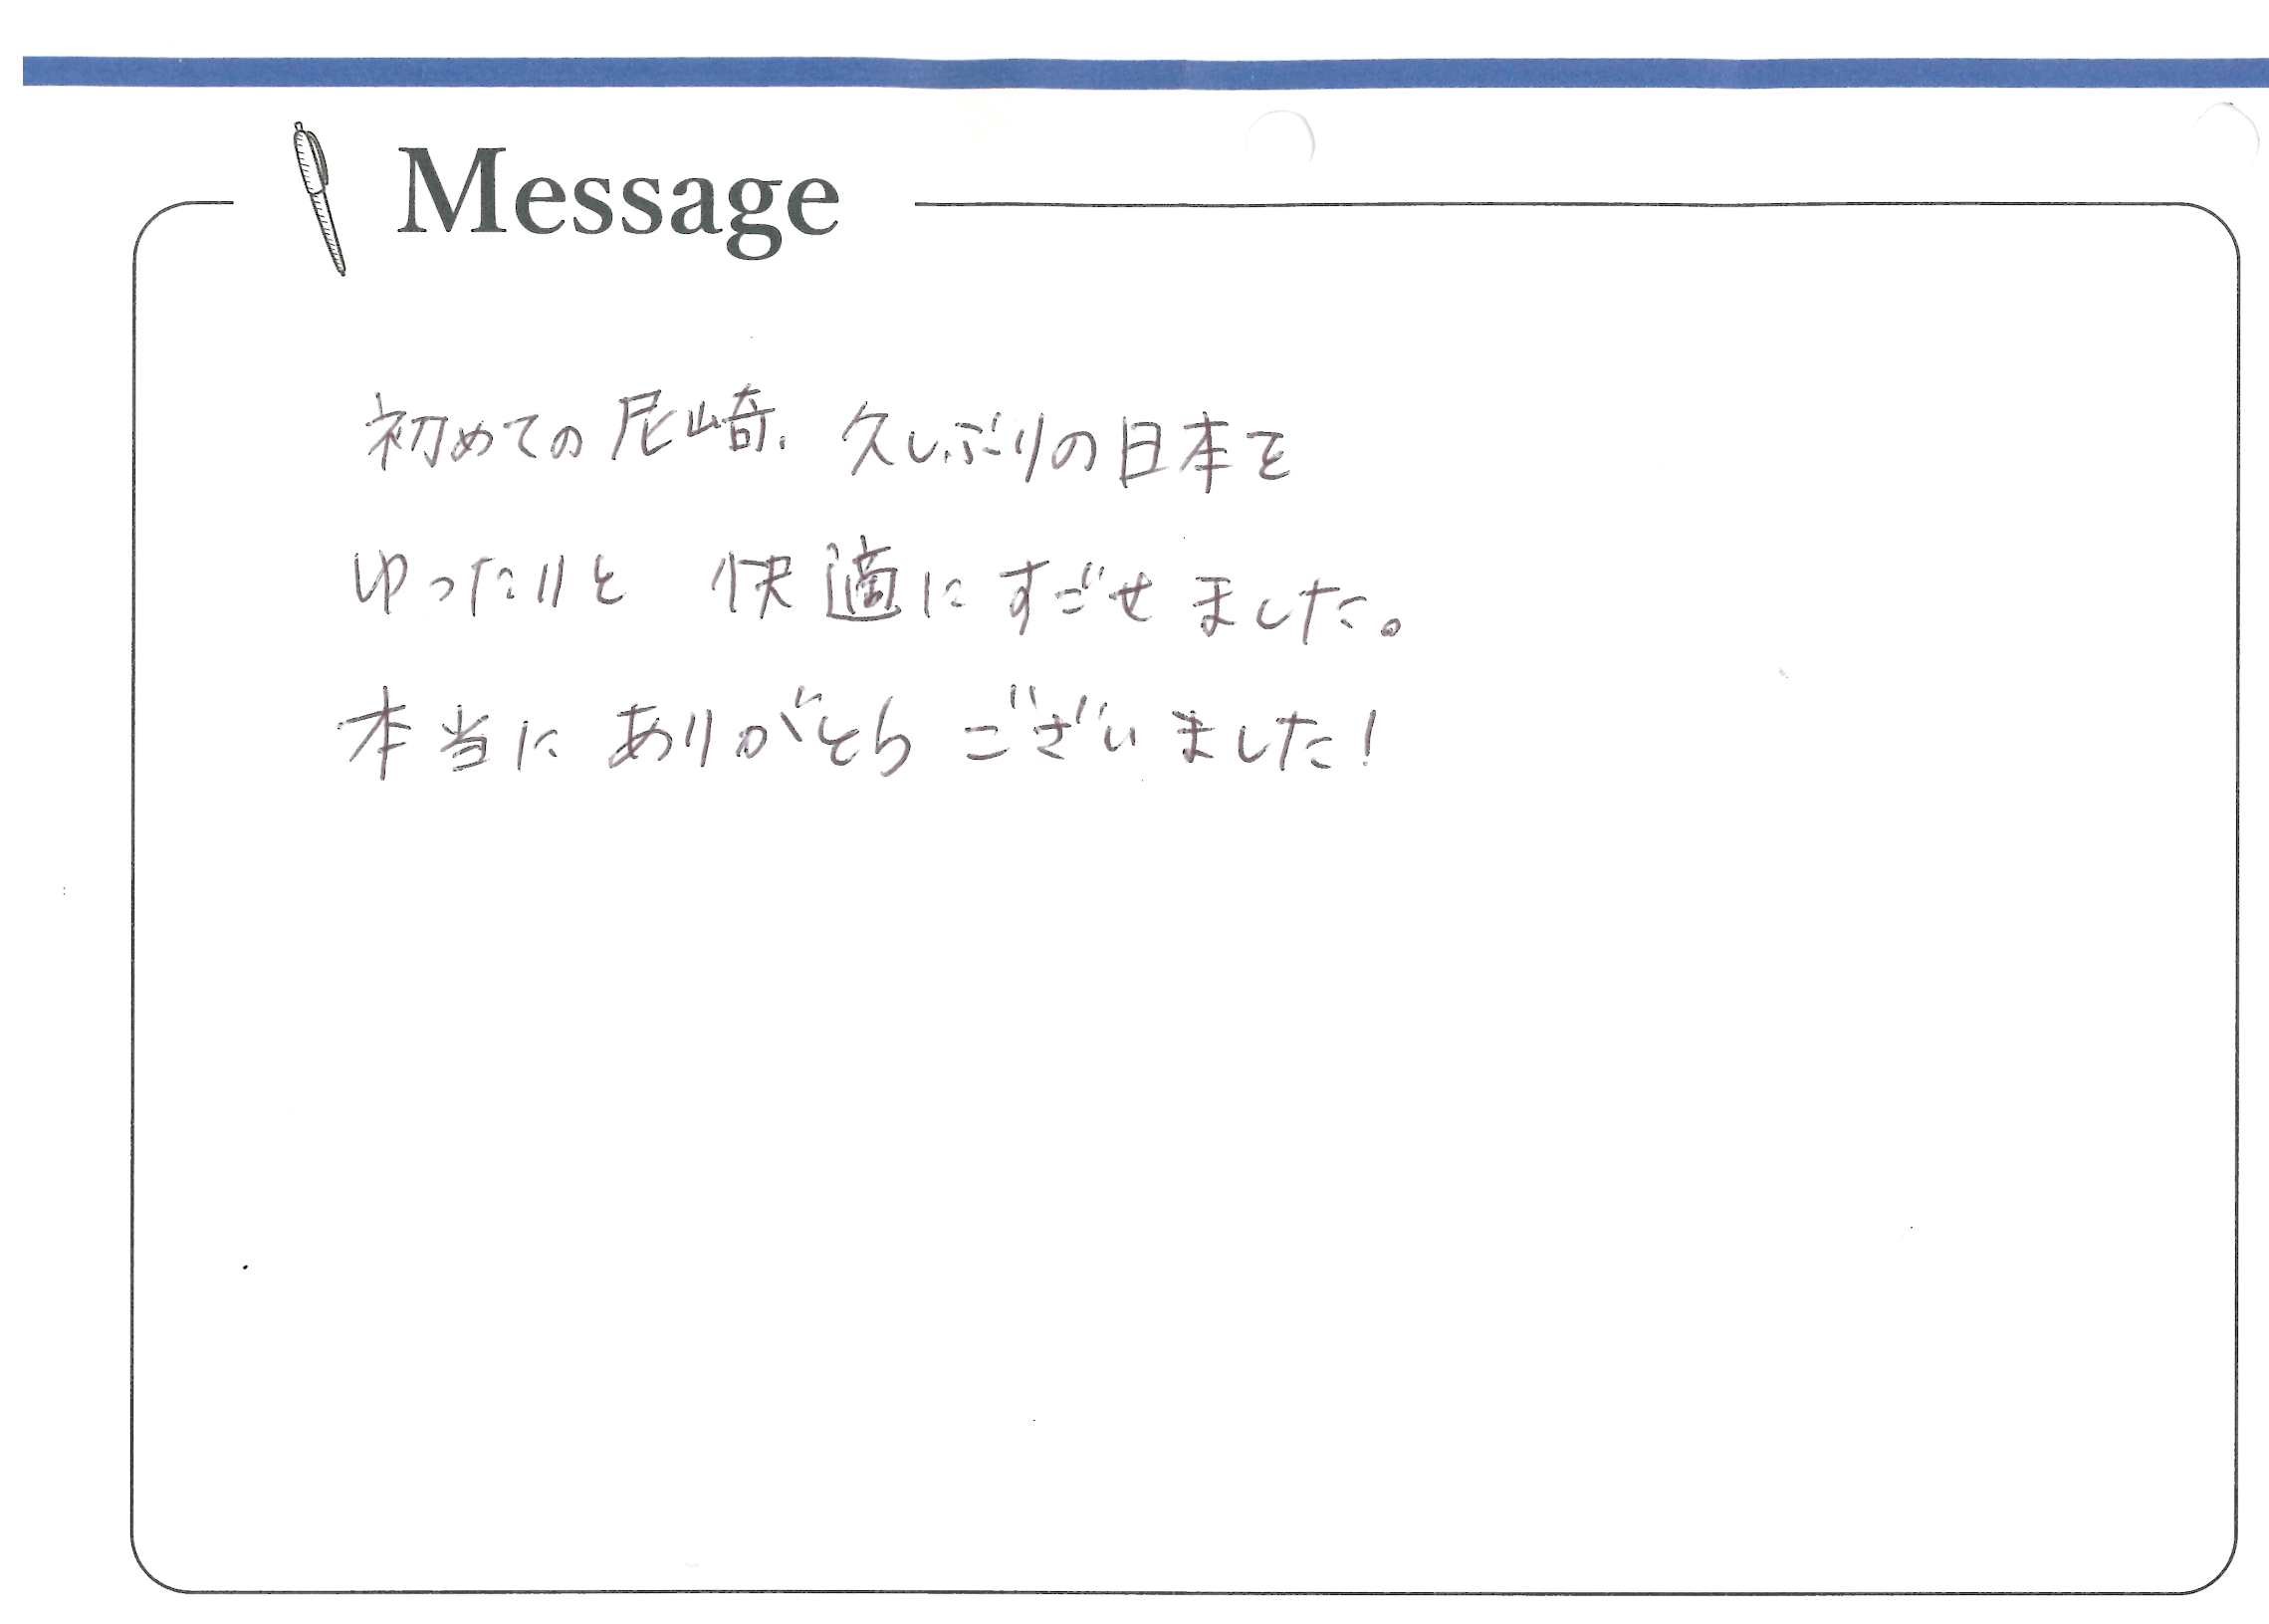 Message
初めての尼崎、久しぶりの日本を
ゆったりと 快適にすごせました。
本当に ありがとう ございました!